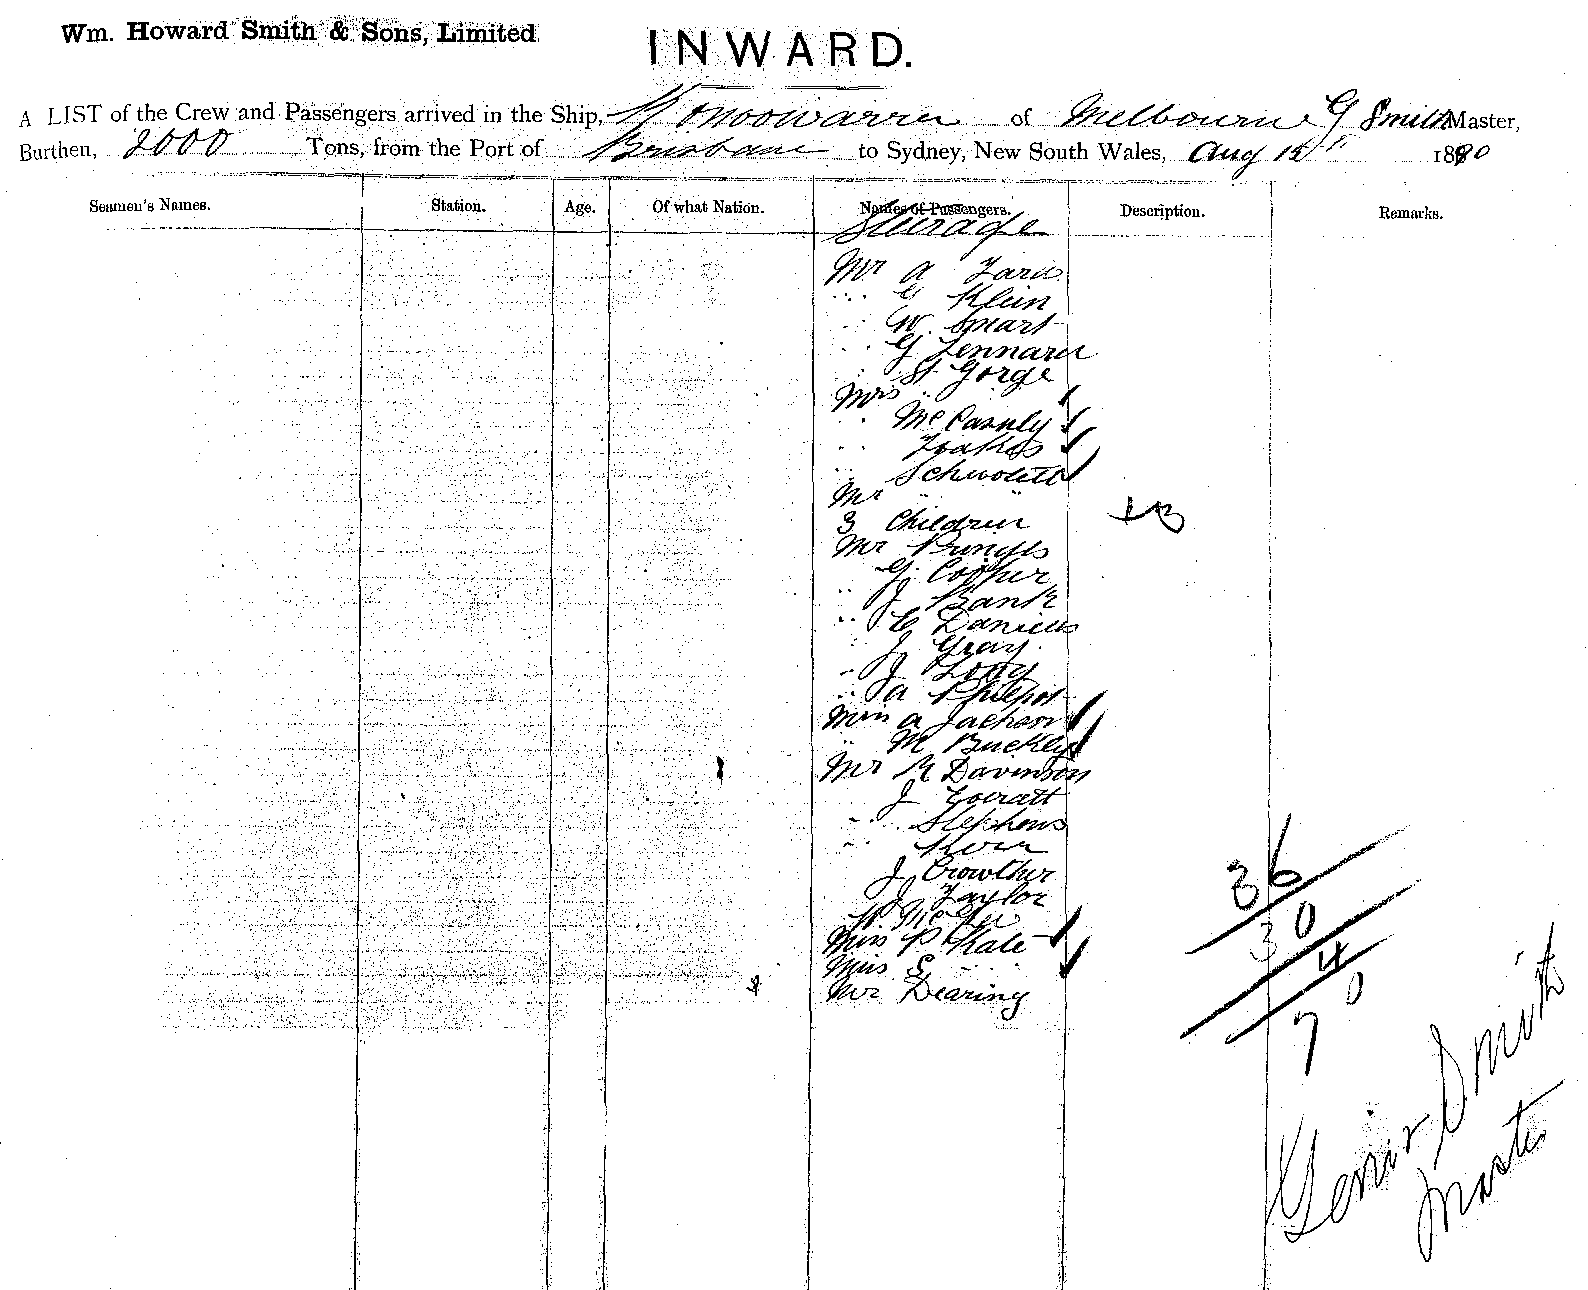 Wm. Howard Smith & Sons, Limited
INWARD.
A LIST of the Crew and Passengers arrived in the Ship, Konoowarra of Melbourne G Smith Master,
Burthen, 2000 Tons, from the Port of Brisbane to Sydney, New South Wales, Aug 15" 1890
Seamen's Names. Station. Age. Of what Nation. Names of Passengers. Description. Remarks.
Steerage
Mr A
" Klein
" W. Smart
" G Lennard
" St Gorge
Mrs " "
"
"
"
Mr " "
3 Children
Mr
G. Cooper
" J Bank
" C Daniells
J Gray
" J Long
" A Philpot
Miss A Jackson
" M Buckley
Mr Davinson
J
" Stephens
"
J Crowther
J Taylor
W
Miss P Kate
Miss E " "
Mr Dearing
+3
36
30
4
70
Smith
Master